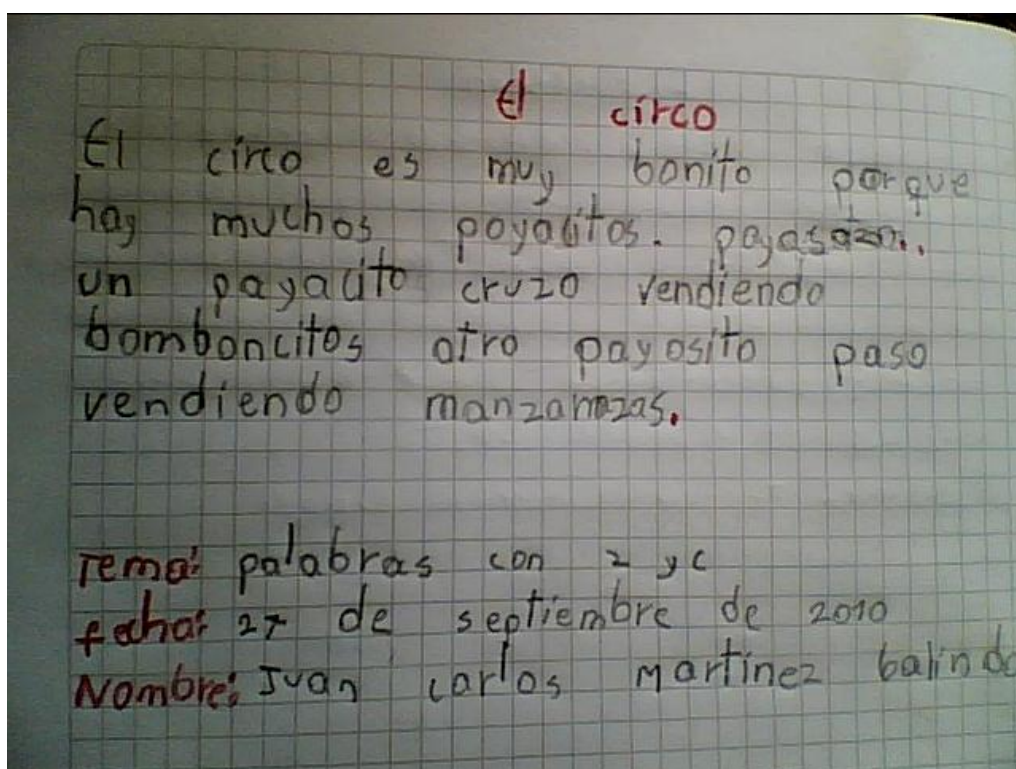 El circo
El circo es muy bonito porque
hay muchos payacitos. payasazo..
un payacito cruzo vendiendo
bomboncitos otro payosito paso
vendiendo manzanazas.
Tema: palabras con z y c
fecha: 27 de septiembre de 2010
Nombre: Juan carlos Martinez balindo